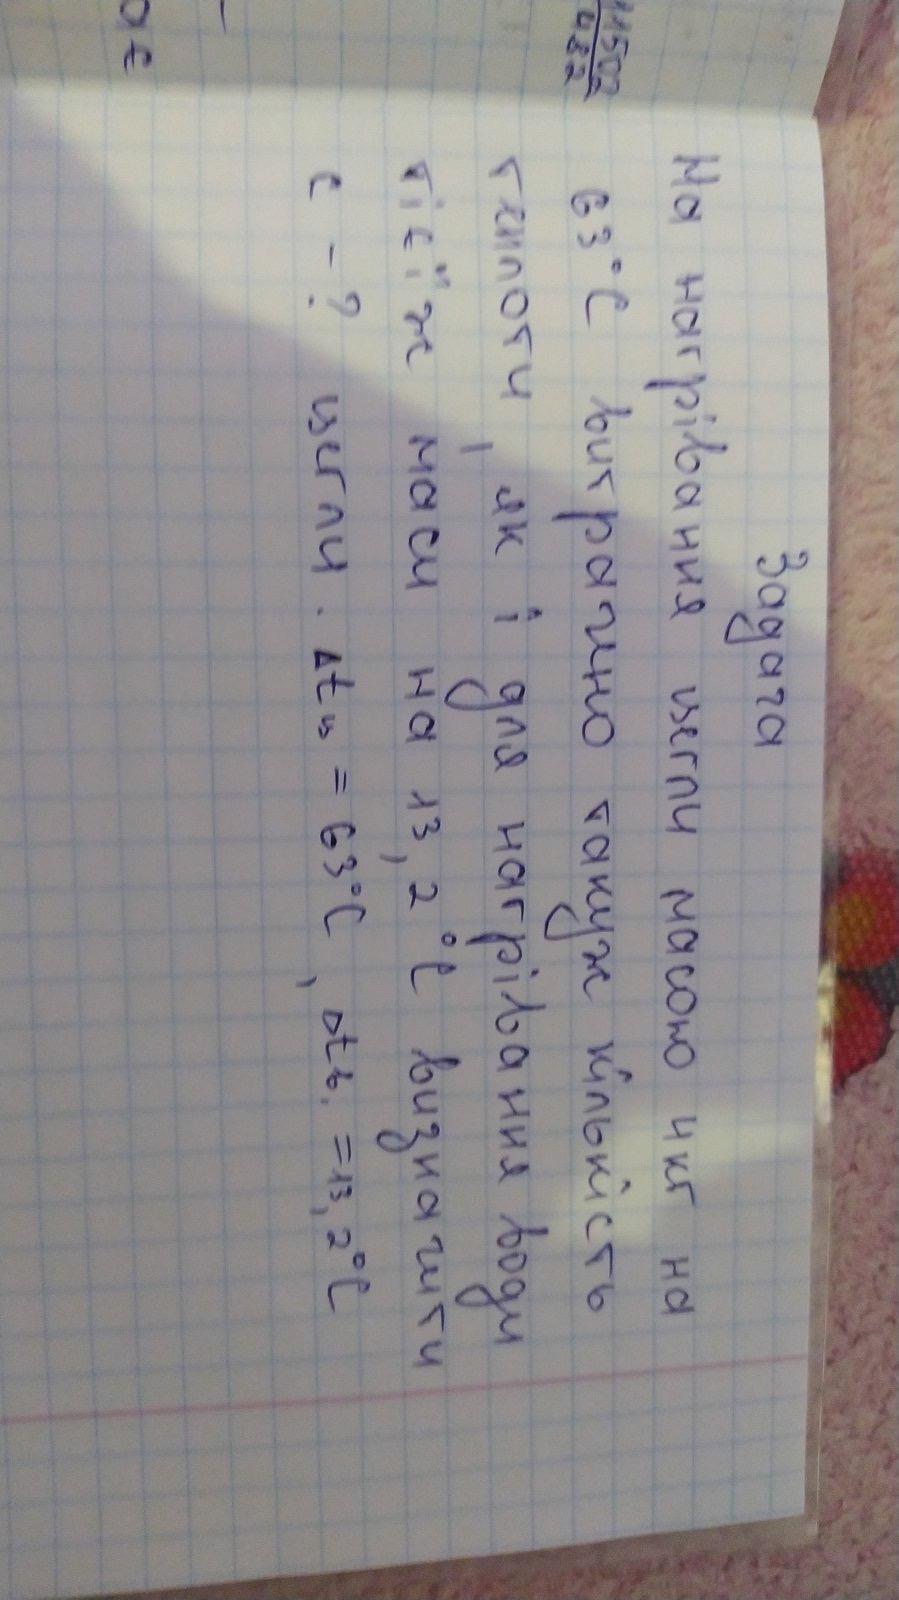 11502
482
ОЄ
Задача
На нагрівання цегли масою 4кг на
63°С витрачено такуж кількість
теплоти, як і для нагрівання води
тієїж маси на 13,2 °С визначити
с - ? цегли. Δtц = 63°С, Δtв. = 13,2°С